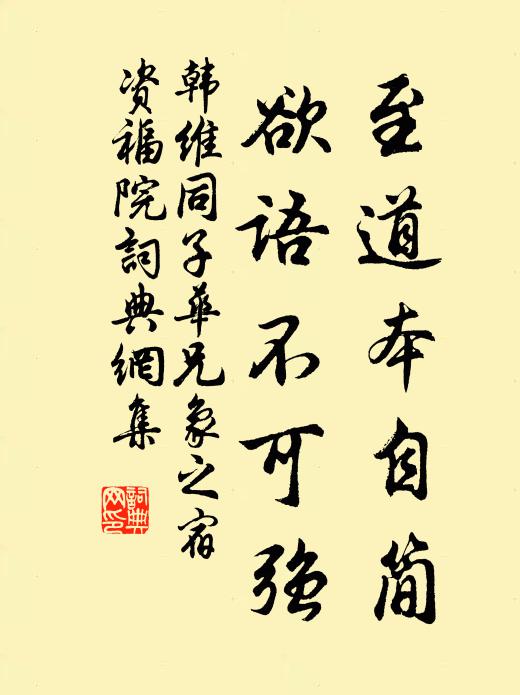 至道本自简
欲语不可强
韩维同子华兄象之宿
资福院詞典網集
詞典网印